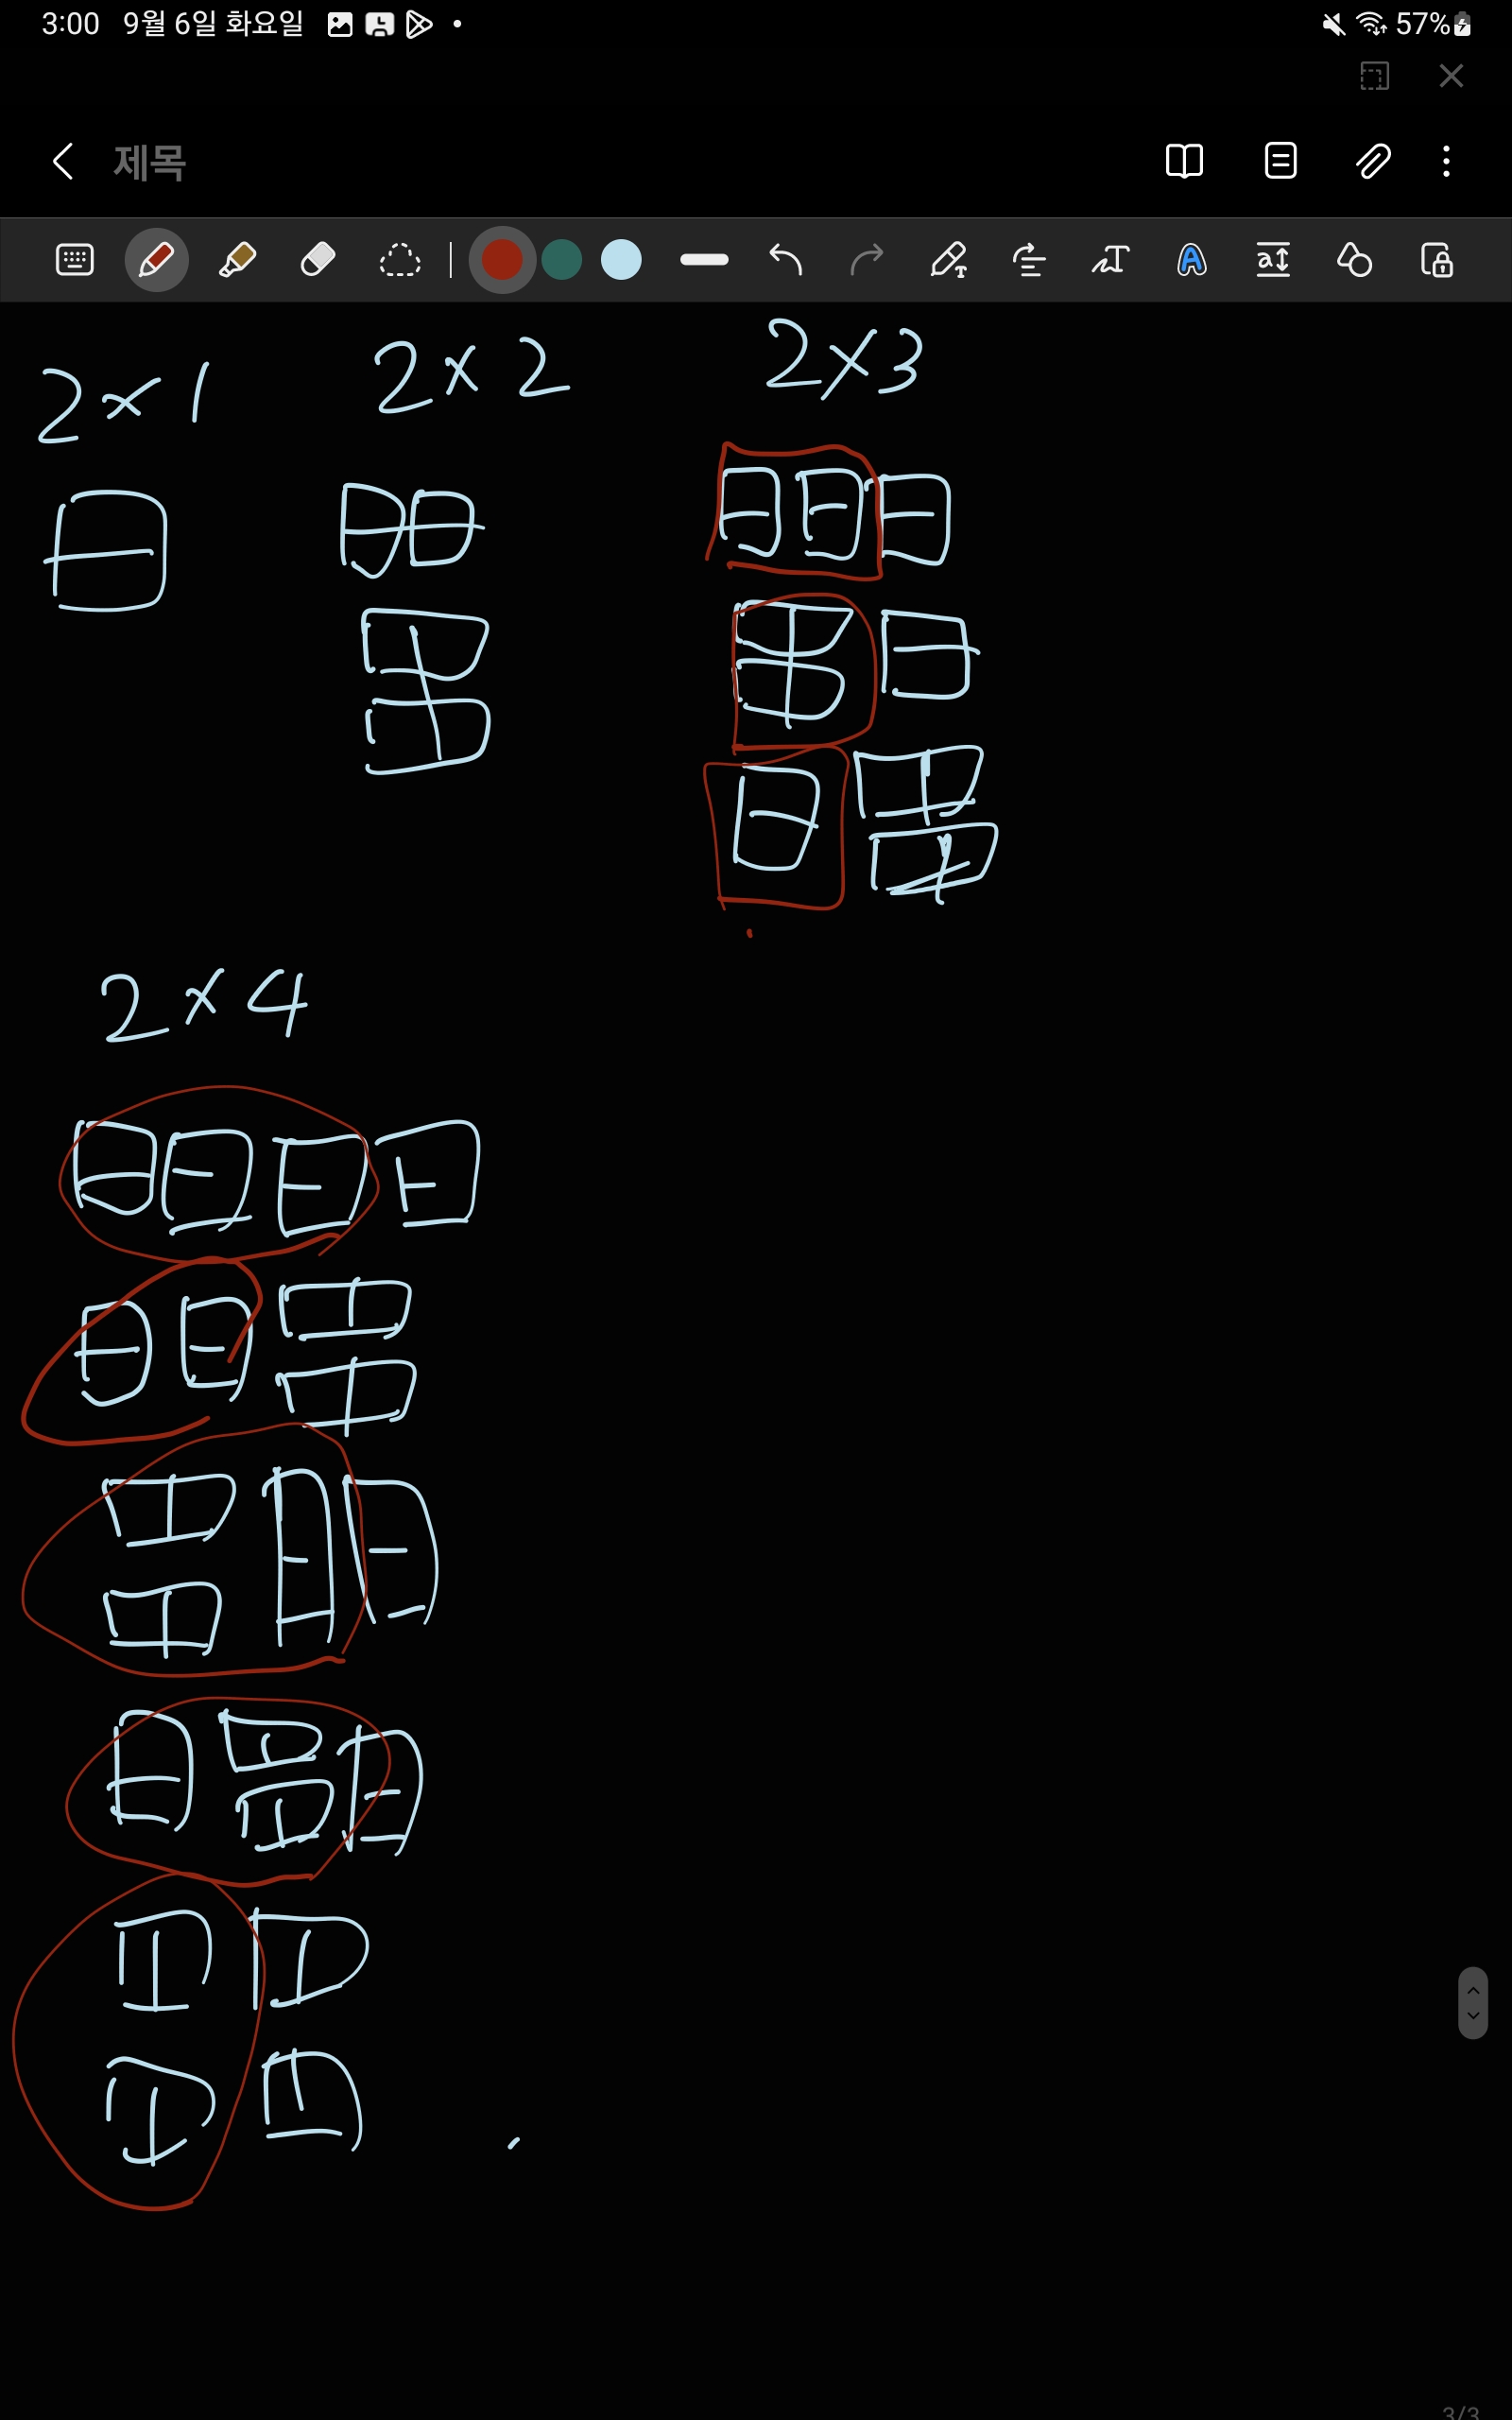 3:00 9월 6일 화요일 57%
제목
2×1 2×2 2×3
2×4
3/3